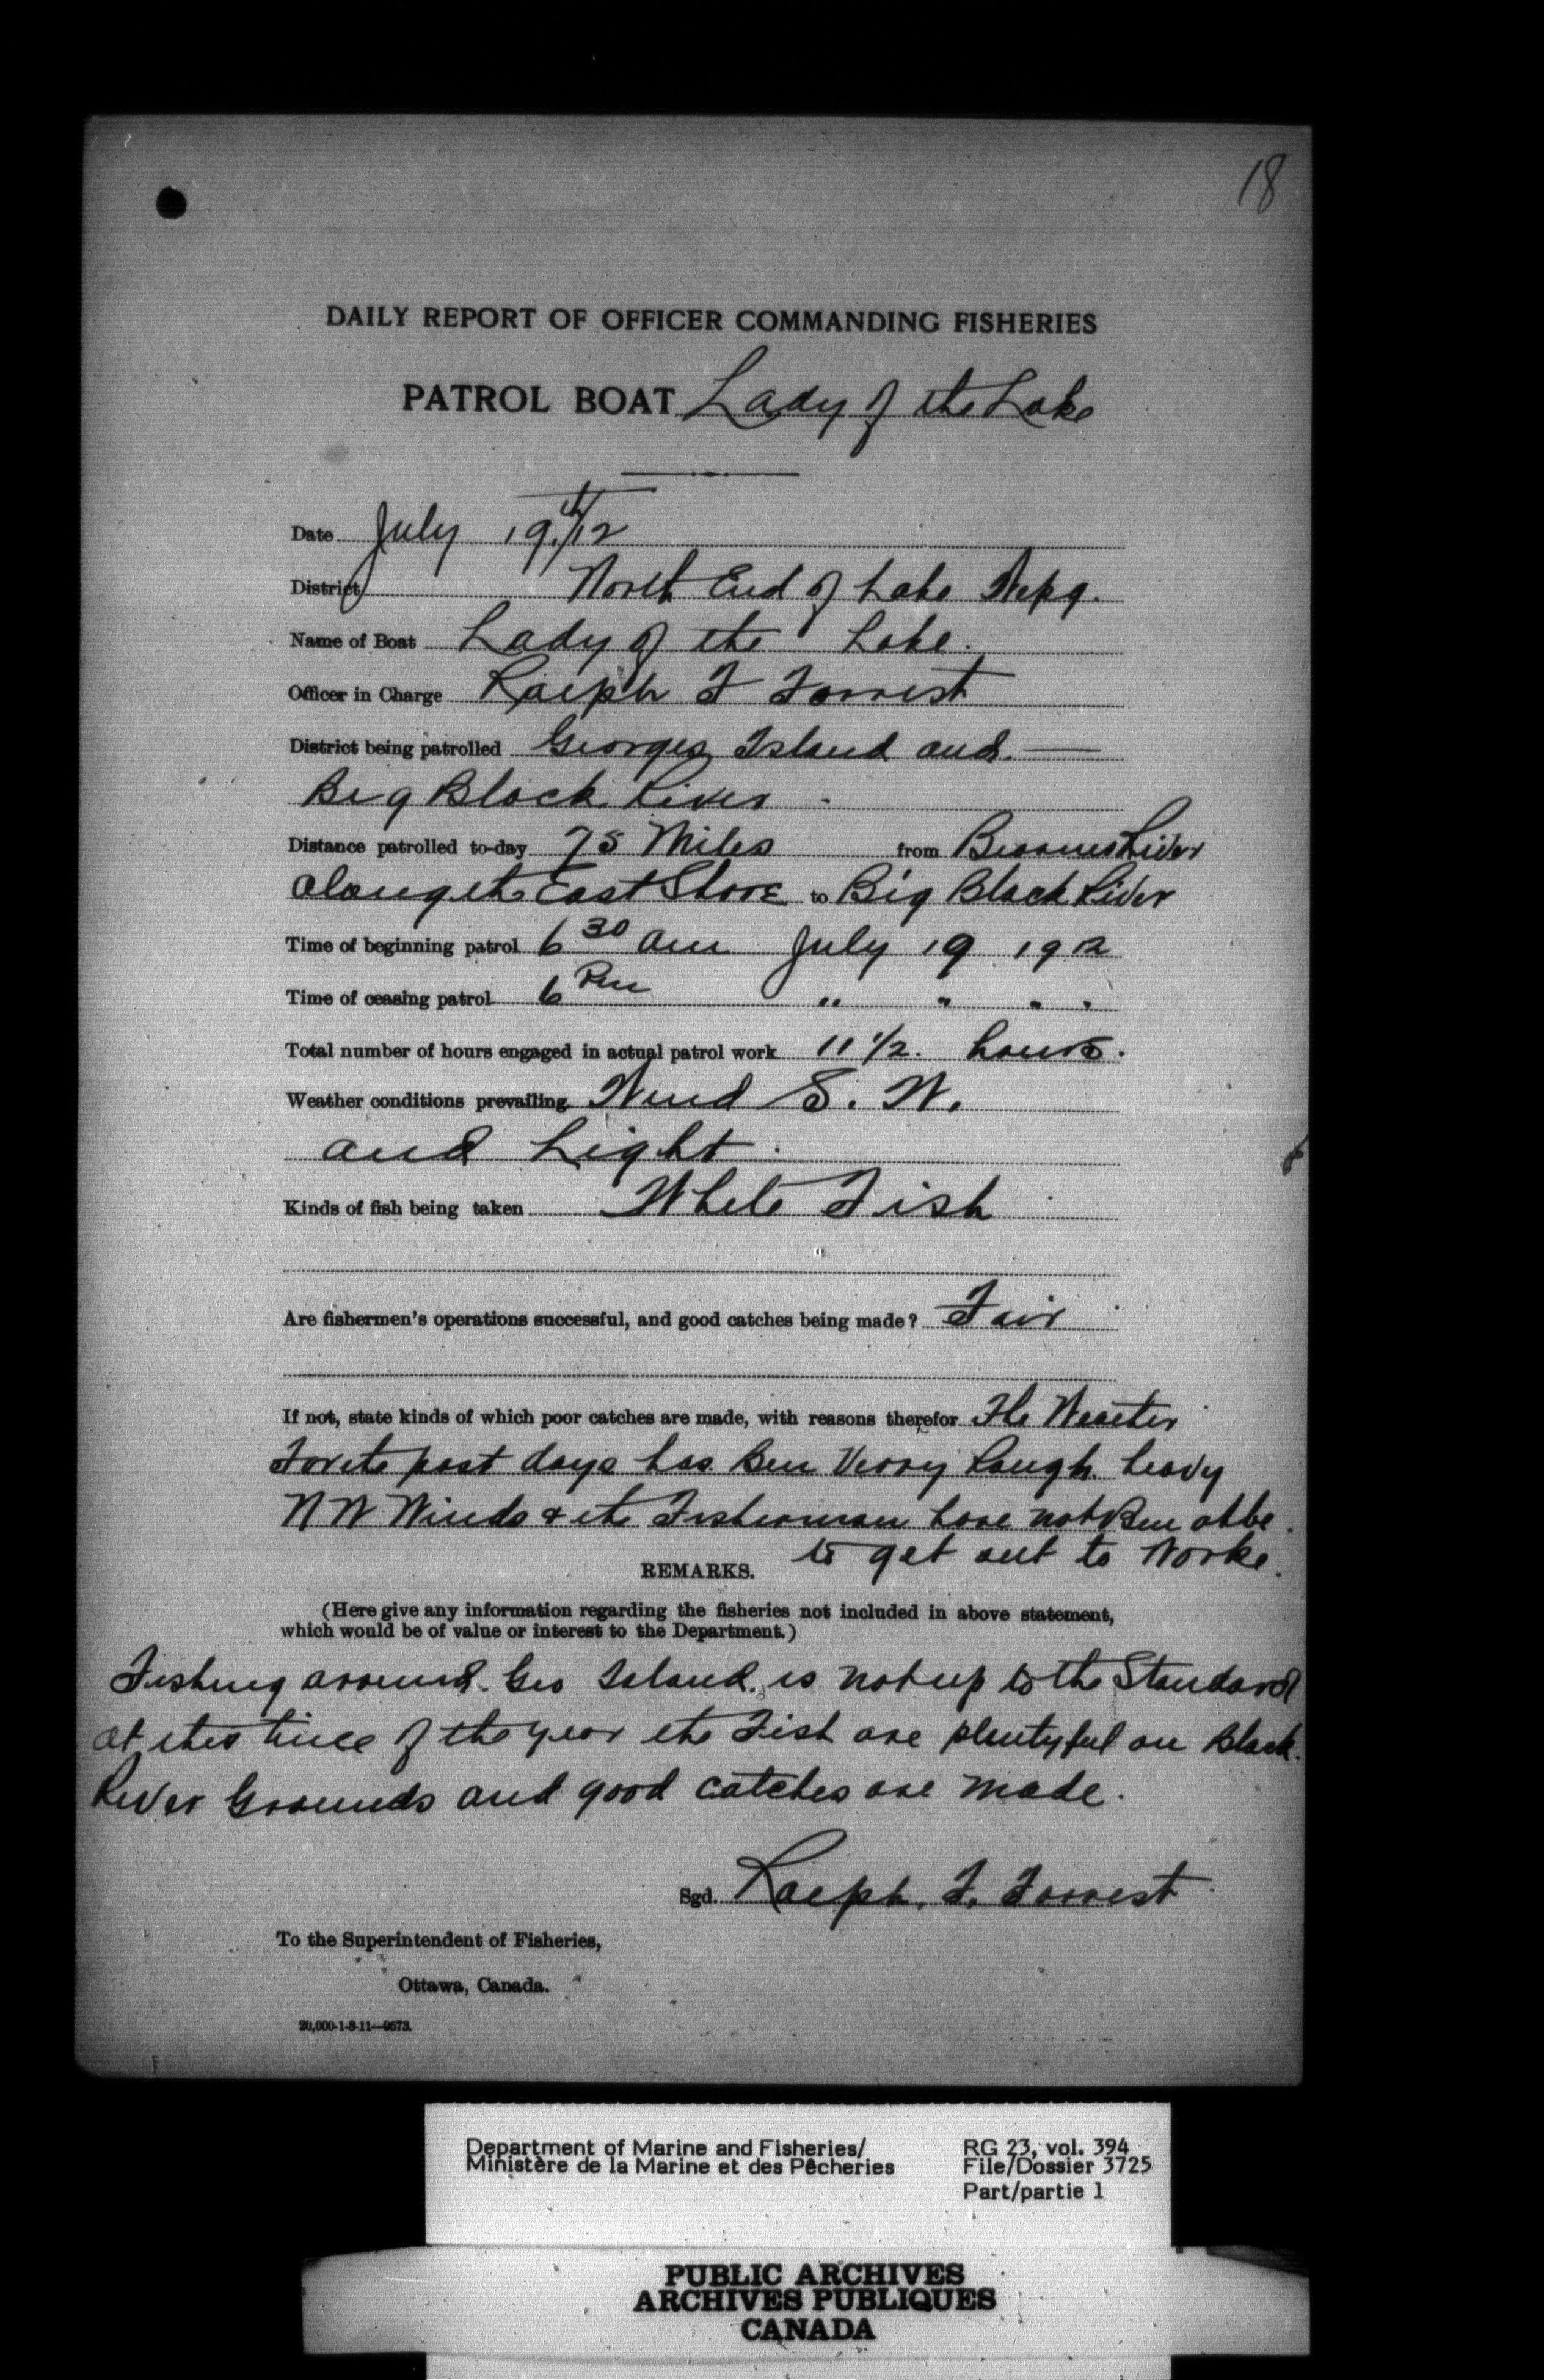 18
DAILY REPORT OF OFFICER COMMANDING FISHERIES
PATROL BOAT Lady of the Lake
Date July 19th/12
District North End of Lake Wnpg.
Name of Boat Lady of the Lake.
Officer in Charge Ralph F Forrest
District being patrolled Georges Island and. —
Big Black River -
Distance patrolled to-day 75 Miles from Berens River
along the East Shore to Big Black River
Time of beginning patrol 6 30 am July 19 1912
Time of ceasing patrol 6 Pm " " " "
Total number of hours engaged in actual patrol work 11 1/2. hours.
Weather conditions prevailing Wind S. W.
and Light.
Kinds of fish being taken White Fish
Are fishermen's operations successful, and good catches being made? Fair
If not, state kinds of which poor catches are made, with reasons therefor The Weather
For the past days has Ben Verry Rough heavy
N W Winds & the Fisherman have not Ben abbe
to get out to Worke.
REMARKS.
(Here give any information regarding the fisheries not included in above statement,
which would be of value or interest to the Department.)
Fishing around Geo Island. is not up to the Standard
at this time of the year the Fish are plentyful on Black
River Grounds and good catches are made.
Sgd. Ralph. F. Forrest
To the Superintendent of Fisheries,
Ottawa, Canada.
20,000-1-8-11—9673.
Department of Marine and Fisheries/ RG 23, vol. 394
Ministère de la Marine et des Pêcheries File/Dossier 3725
Part/partie 1
PUBLIC ARCHIVES
ARCHIVES PUBLIQUES
CANADA